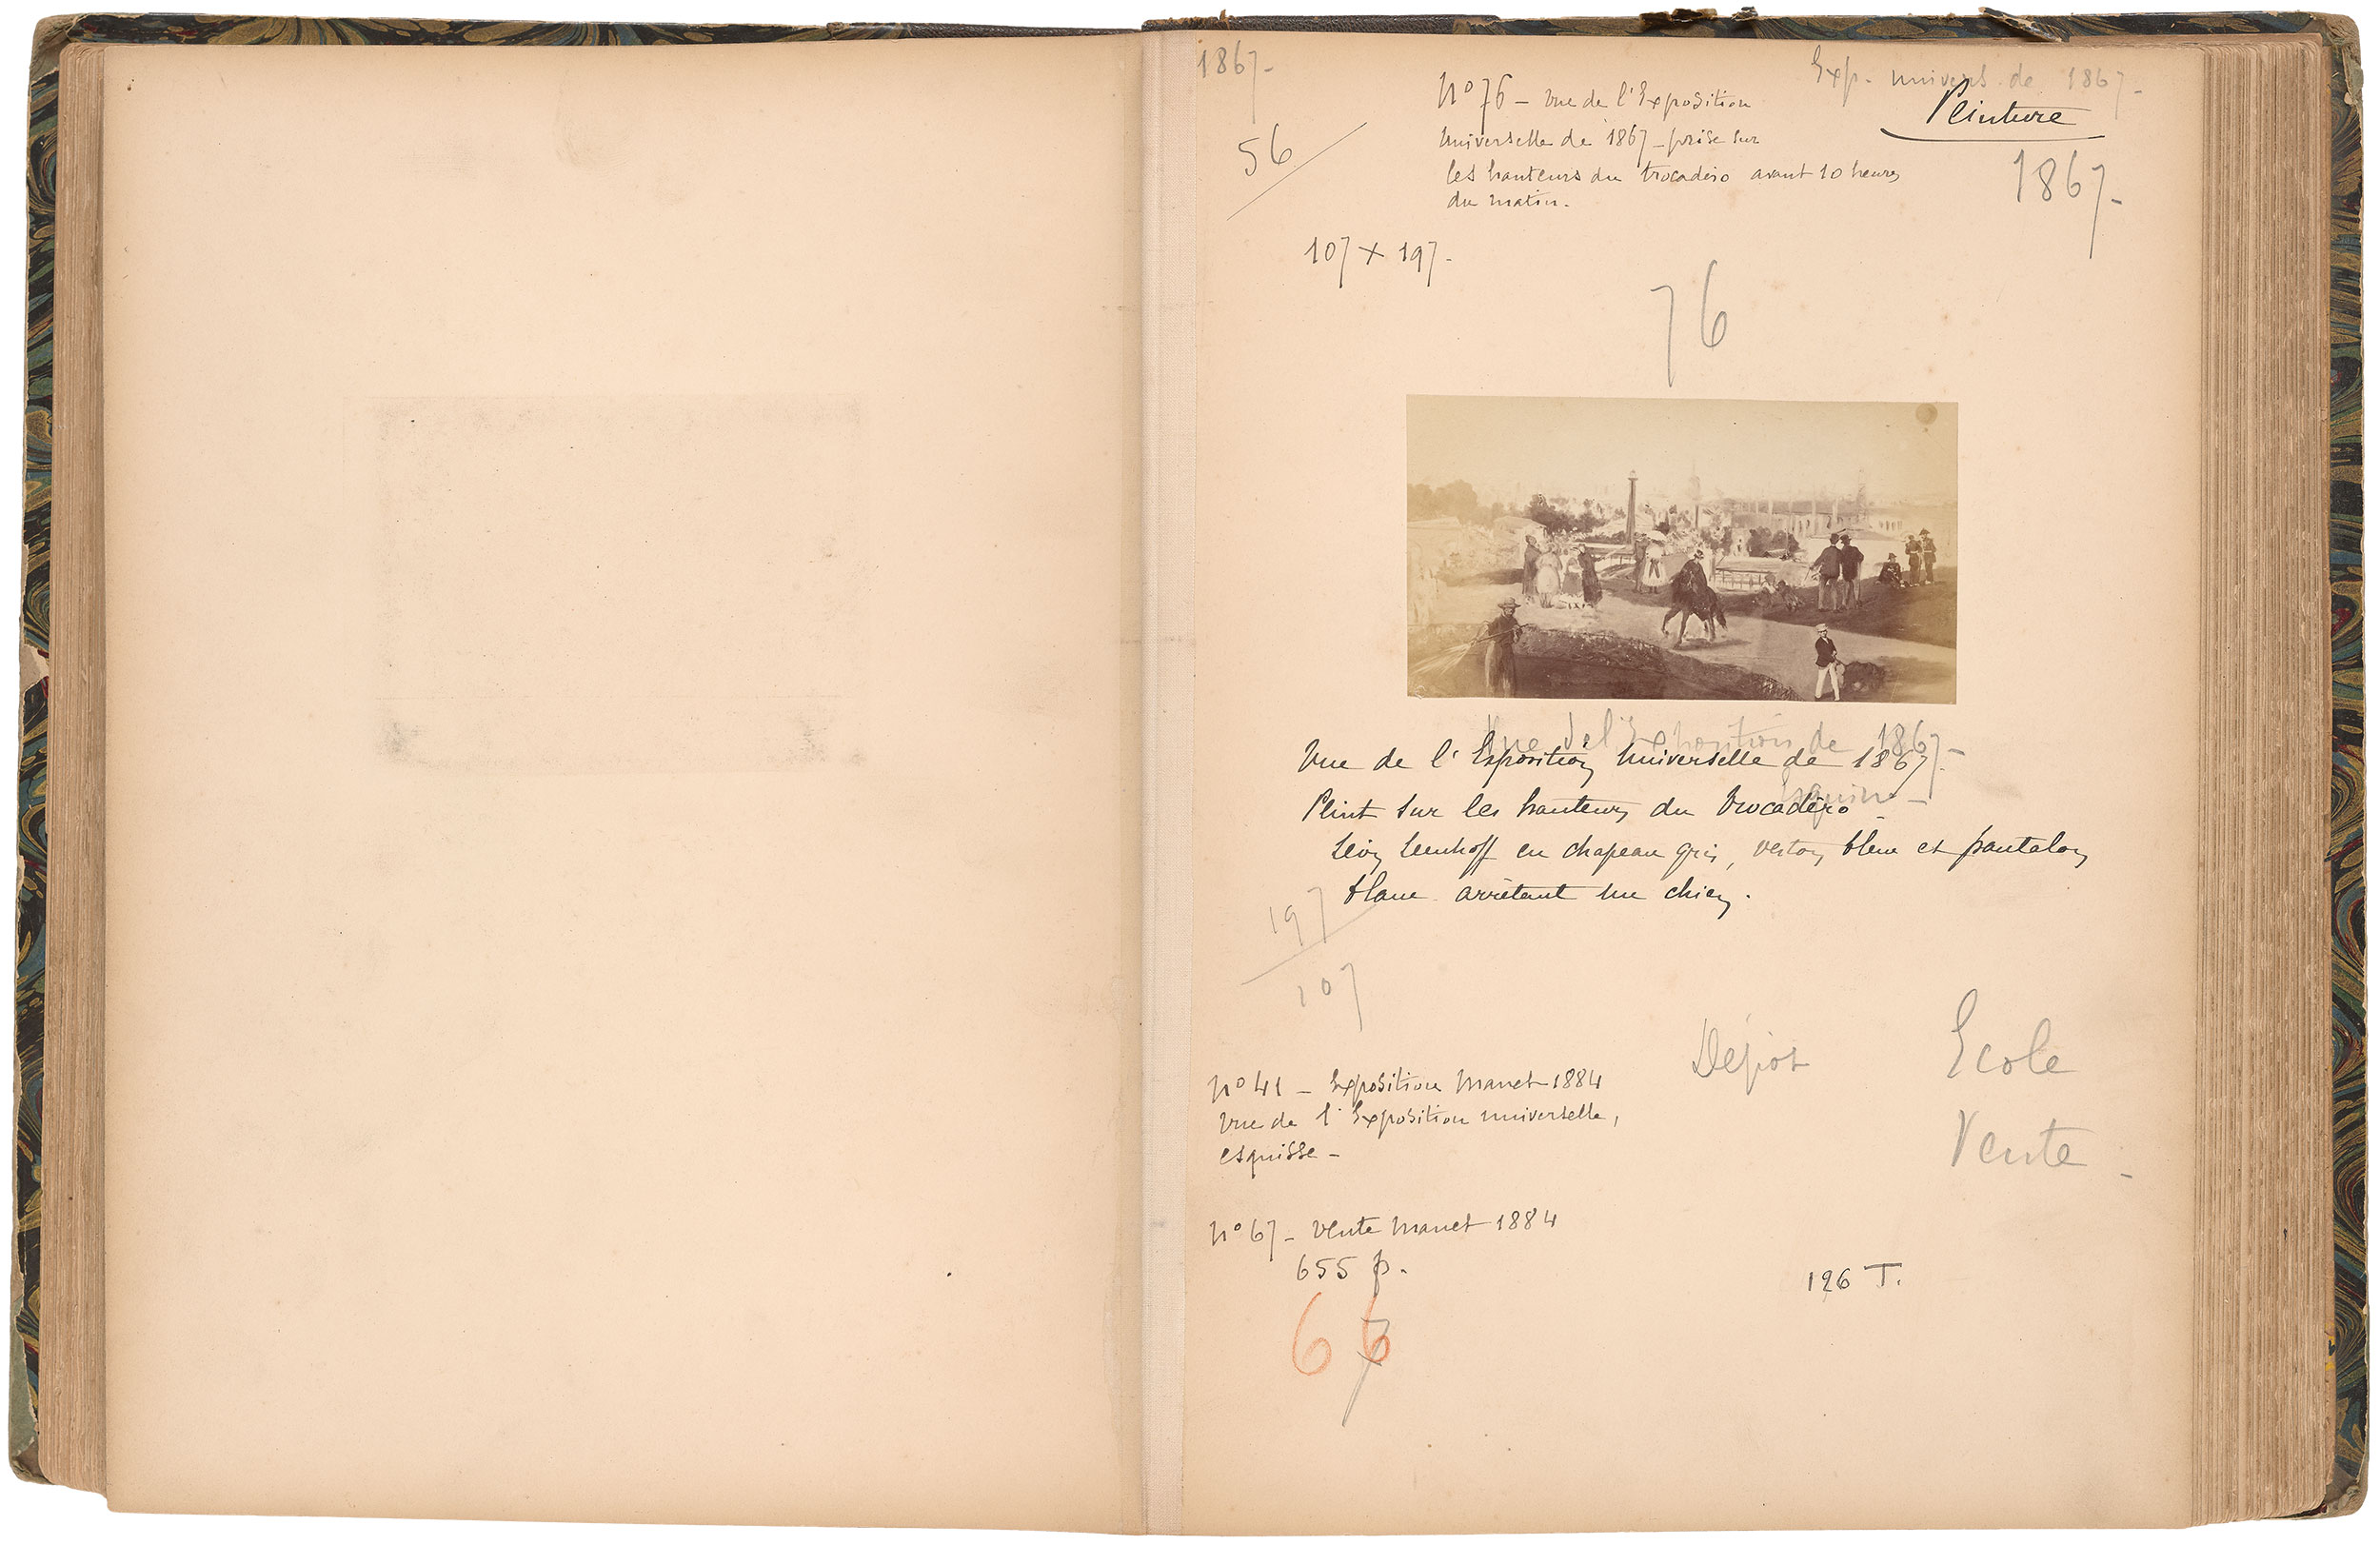 1867-
Exp. univers. de 1867-
Peinture
1867-
56
N° 76 - Vue de l'Exposition
Universelle de 1867 - prise sur
les hauteurs du trocadéro avant 10 heures
du matin.
107 x 197.
76
Vue de l'Exposition de 1867-
Vue de l'Exposition Universelle de 1867.
Peint sur les hauteurs du Trocadéro -
Léon Leenhoff en chapeau gris, veston bleu et pantalon
blanc arrêtant un chien.
197
107
Dépot
Ecole
Vente -
N° 41 - Exposition Manet 1884
Vue de l'Exposition universelle,
esquisse -
N° 67 - Vente Manet 1884
655 p.
126 T.
66